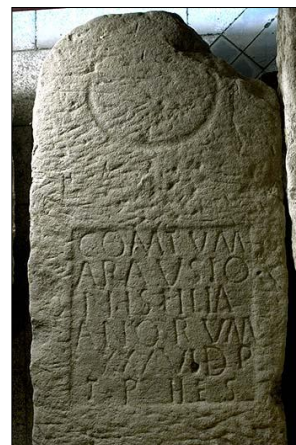 COMTVM
ARAVSIO
NIS FILIA
ANORVM
D P
T P H E S